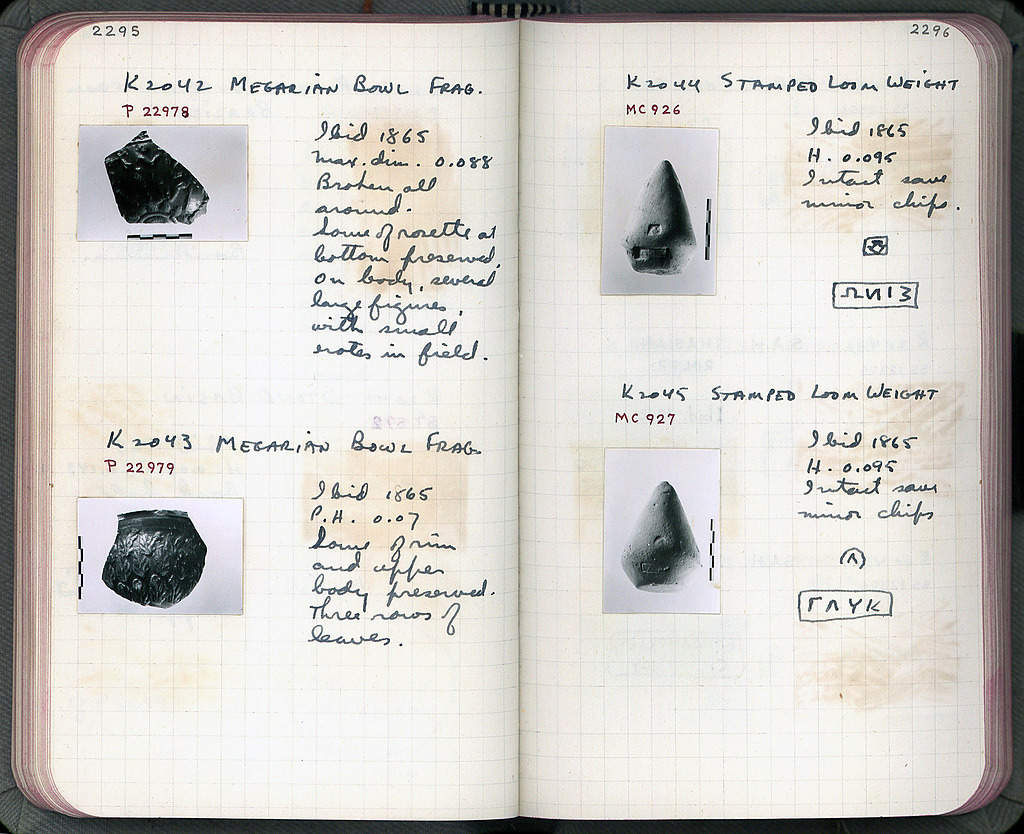 2295
K2042 MEGARIAN BOWL FRAG.
P 22978
Ibid 1865
Max. dim. 0.088
Broken all
around.
Some of rosette at
bottom preserved.
On body, several
large figures,
with small
erotes in field.
K2043 MEGARIAN BOWL FRAG
P 22979
Ibid 1865
P.H. 0.07
Some of rim
and upper
body preserved.
Three rows of
leaves.
2296
K2044 STAMPED LOOM WEIGHT
MC 926
Ibid 1865
H. 0.095
Intact save
minor chips.
K2045 STAMPED LOOM WEIGHT
MC 927
Ibid 1865
H. 0.095
Intact save
minor chips
ΓΛΥΚ